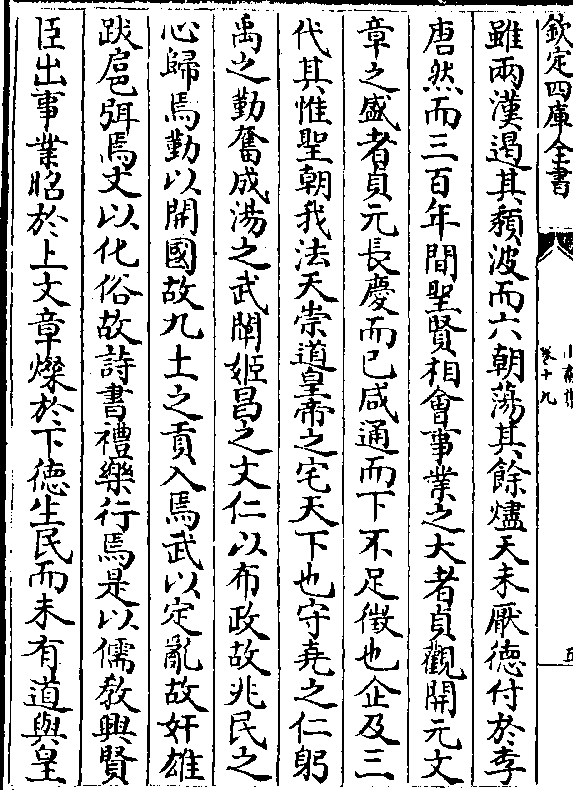 欽定四庫全書
卷十九
五
雖兩漢遏其頽波而六朝蕩其餘燼天未厭德付於李
唐然而三百年間聖賢相會事業之大者貞觀開元文
章之盛者貞元長慶而已咸通而下不足徴也企及三
代其惟聖朝我法天崇道皇帝之宅天下也守堯之仁躬
禹之勤奮成湯之武闡姬昌之文仁以布政故兆民之
心歸焉勤以開國故九土之貢入焉武以定亂故奸雄
跋扈弭焉文以化俗故詩書禮樂行焉是以儒教興賢
臣出事業昭於上文章燦於下德生民而未有道與皇